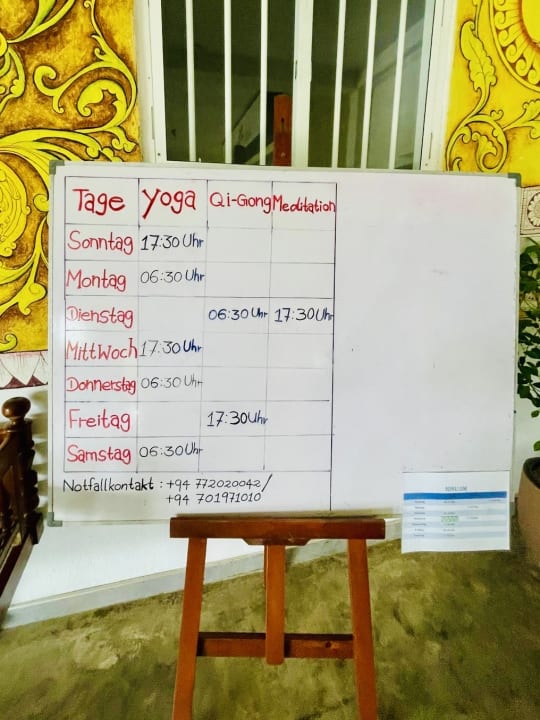 Tage Yoga Qi-Giong Meditation
Sonntag 17:30 Uhr
Montag 06:30 Uhr
Dienstag 06:30 Uhr 17:30 Uhr
MittWoch 17:30 Uhr
Donnerstag 06:30 Uhr
Freitag 17:30 Uhr
Samstag 06:30 Uhr
Notfallkontakt : +94 772020042/
+94 701971010